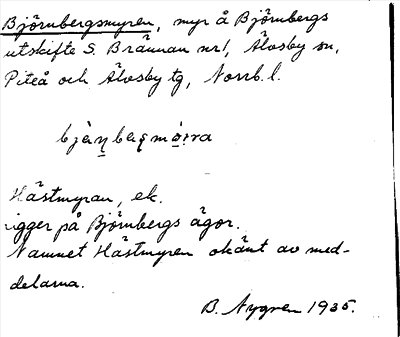 Björnbergsmyren, myr å Björnbergs
utskifte S. Brännan nr 1, Älvsby sn,
Piteå och Älvsby tg, Norrb. l.
Hästmyran, ek.
igger på Björnbergs ägor.
Namnet Hästmyren okänt av med-
delarna.
B. Nygren 1935.